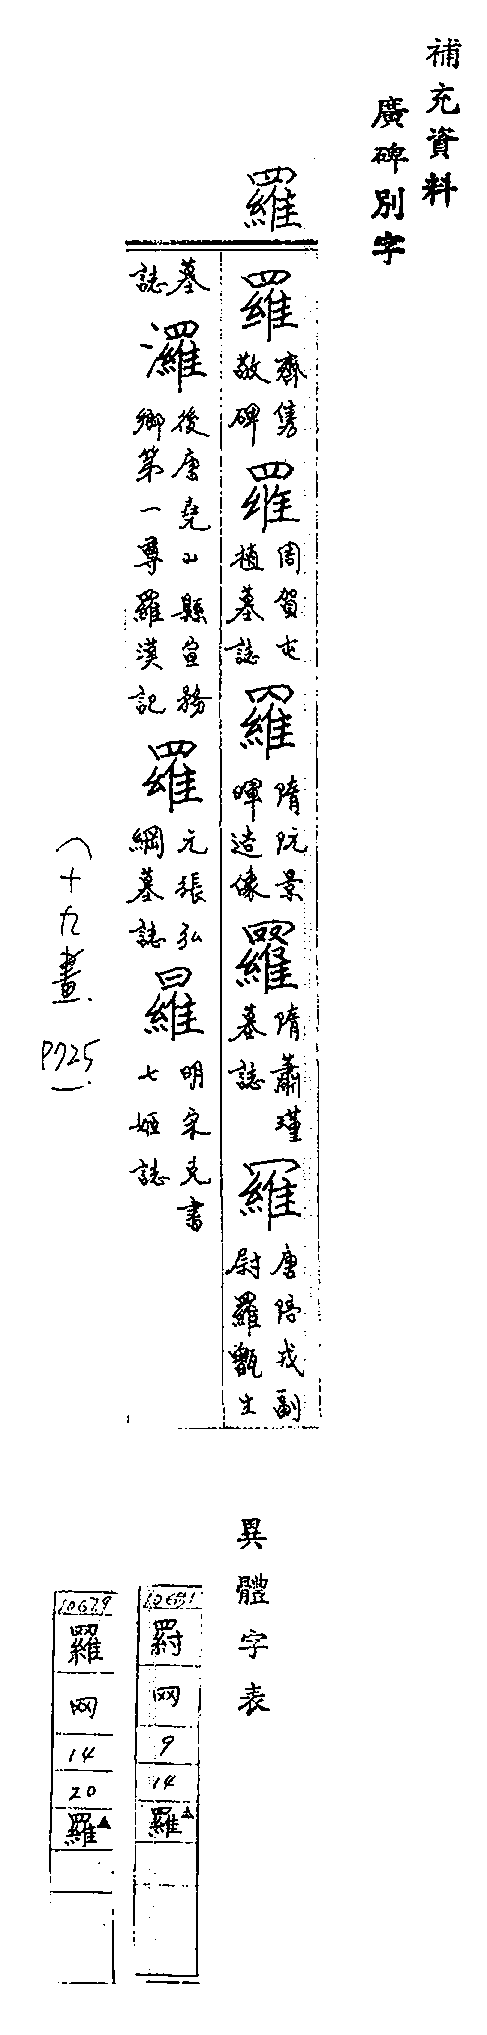 補充資料
廣碑別字
羅
羅 齊雋敬碑 羅 周賀屯植墓誌 羅 隋阮景暉造像 羅 隋蕭瑾墓誌 羅 唐陪戎副尉羅甑生
墓誌 灑 後唐堯山縣宣務鄉第一尊羅漢記 羅 元張弘綱墓誌 羅 明宋克書七姬誌
(十九畫 P725)
異體字表
10681
网
9
14
羅
10679
羅
网
14
20
羅